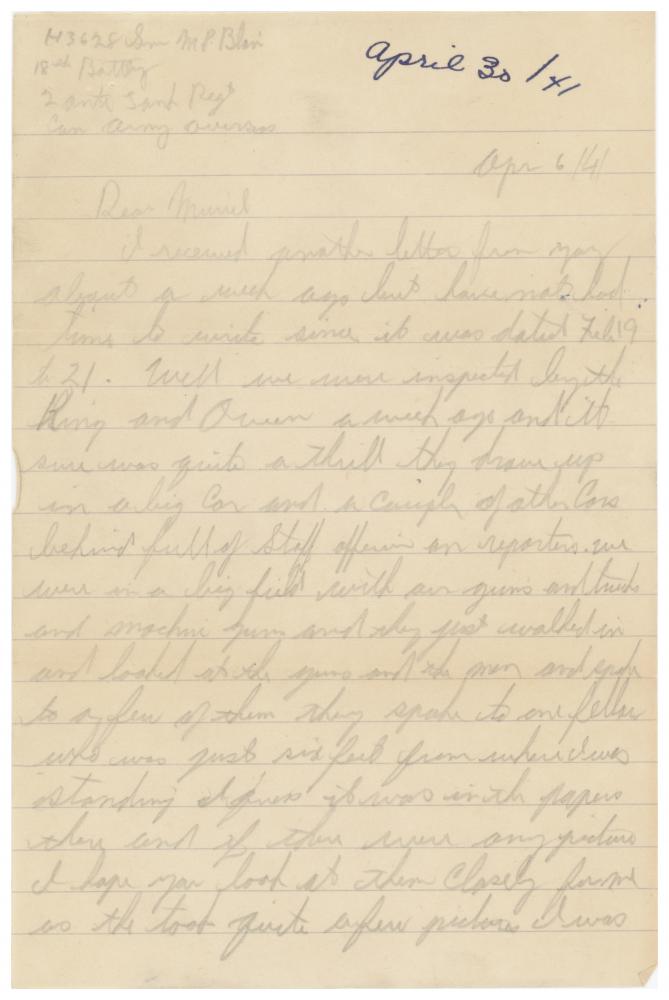 H3628 Gnr M P Blair
April 30/41
18th Battery
2 anti Tank Regt
Can Army overseas
Apr 6/41
Dear Muriel
I received another letter from you
about a week ago but have not had
time to write since it was dated Feb 19
to 21. Well we were inspected by the
King and Queen a week ago and it
sure was quite a thrill they drove up
in a big Car and a couple of other Cars
behind full of Staff officers an reporters. we
were in a big field with our guns and trucks
and machine guns and they just walked in
and looked at the guns and the men and spoke
to a few of them they spoke to one fellow
who was just six feet from where I was
standing I guess it was in the papers
there and if there were any picture
I hope you look at them Closely for me
as the took quite a few pictures I was